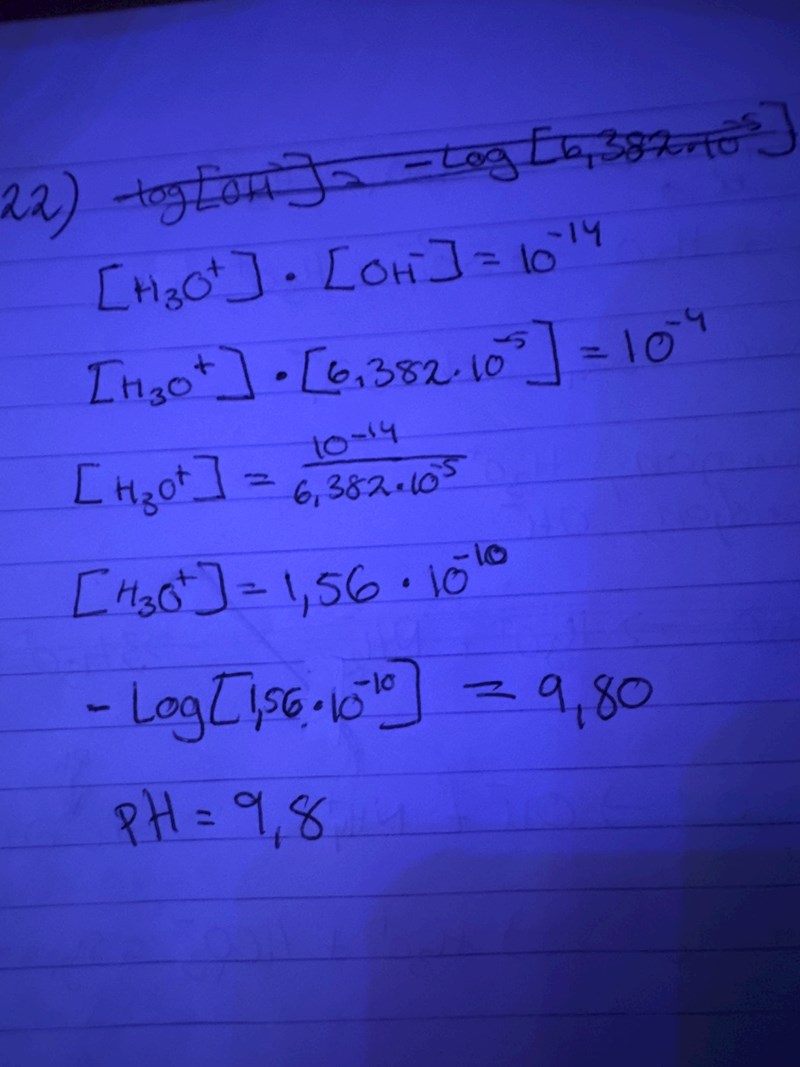 22) -log[OH⁻] = -Log[6,382·10⁻⁵]
[H₃O⁺] · [OH⁻] = 10⁻¹⁴
[H₃O⁺] · [6,382·10⁻⁵] = 10⁻⁴
[H₃O⁺] = 10⁻¹⁴ / 6,382·10⁻⁵
[H₃O⁺] = 1,56 · 10⁻¹⁰
- Log[1,56·10⁻¹⁰] = 9,80
PH = 9,8